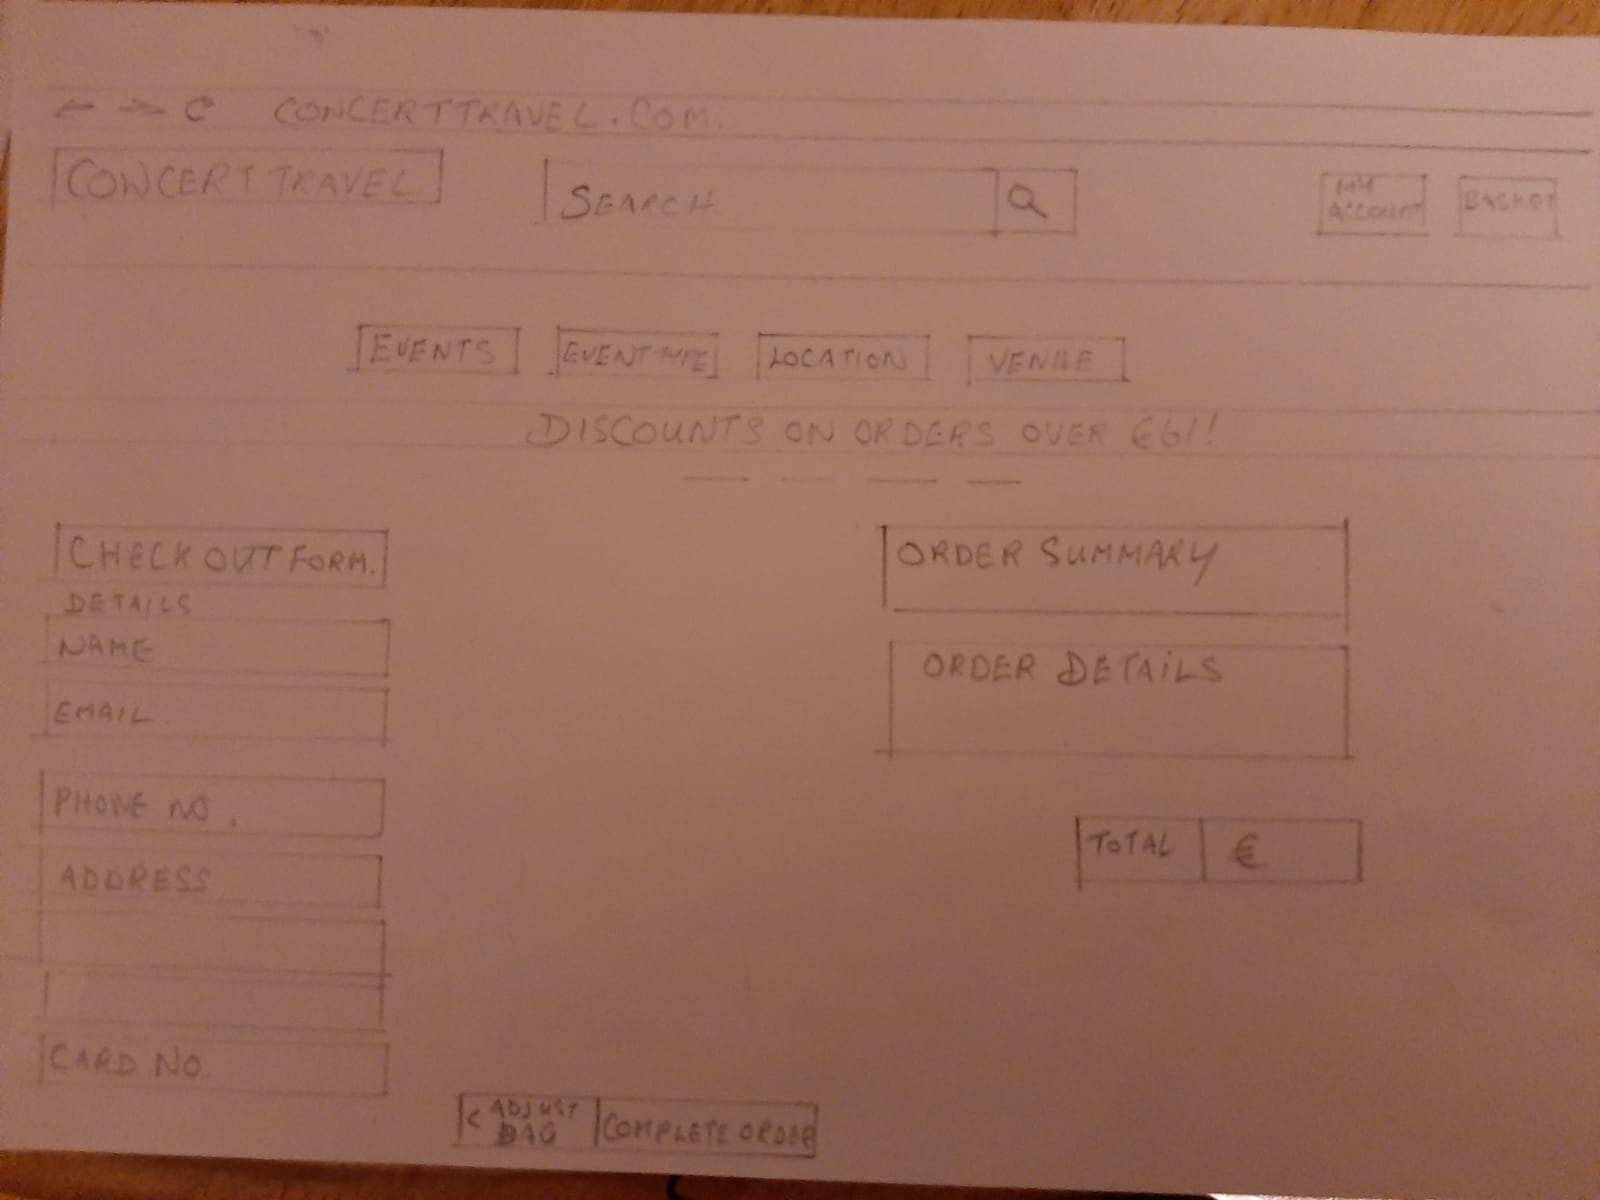 ← → C CONCERTTRAVEL.COM.
CONCERT TRAVEL
SEARCH
MY
ACCOUNT
BASKET
EVENTS
EVENT TYPE
LOCATION
VENUE
DISCOUNTS ON ORDERS OVER €61!
CHECKOUT FORM.
DETAILS
NAME
EMAIL
PHONE NO.
ADDRESS
CARD NO.
ORDER SUMMARY
ORDER DETAILS
TOTAL €
< ADJUST
BAG
COMPLETE ORDER